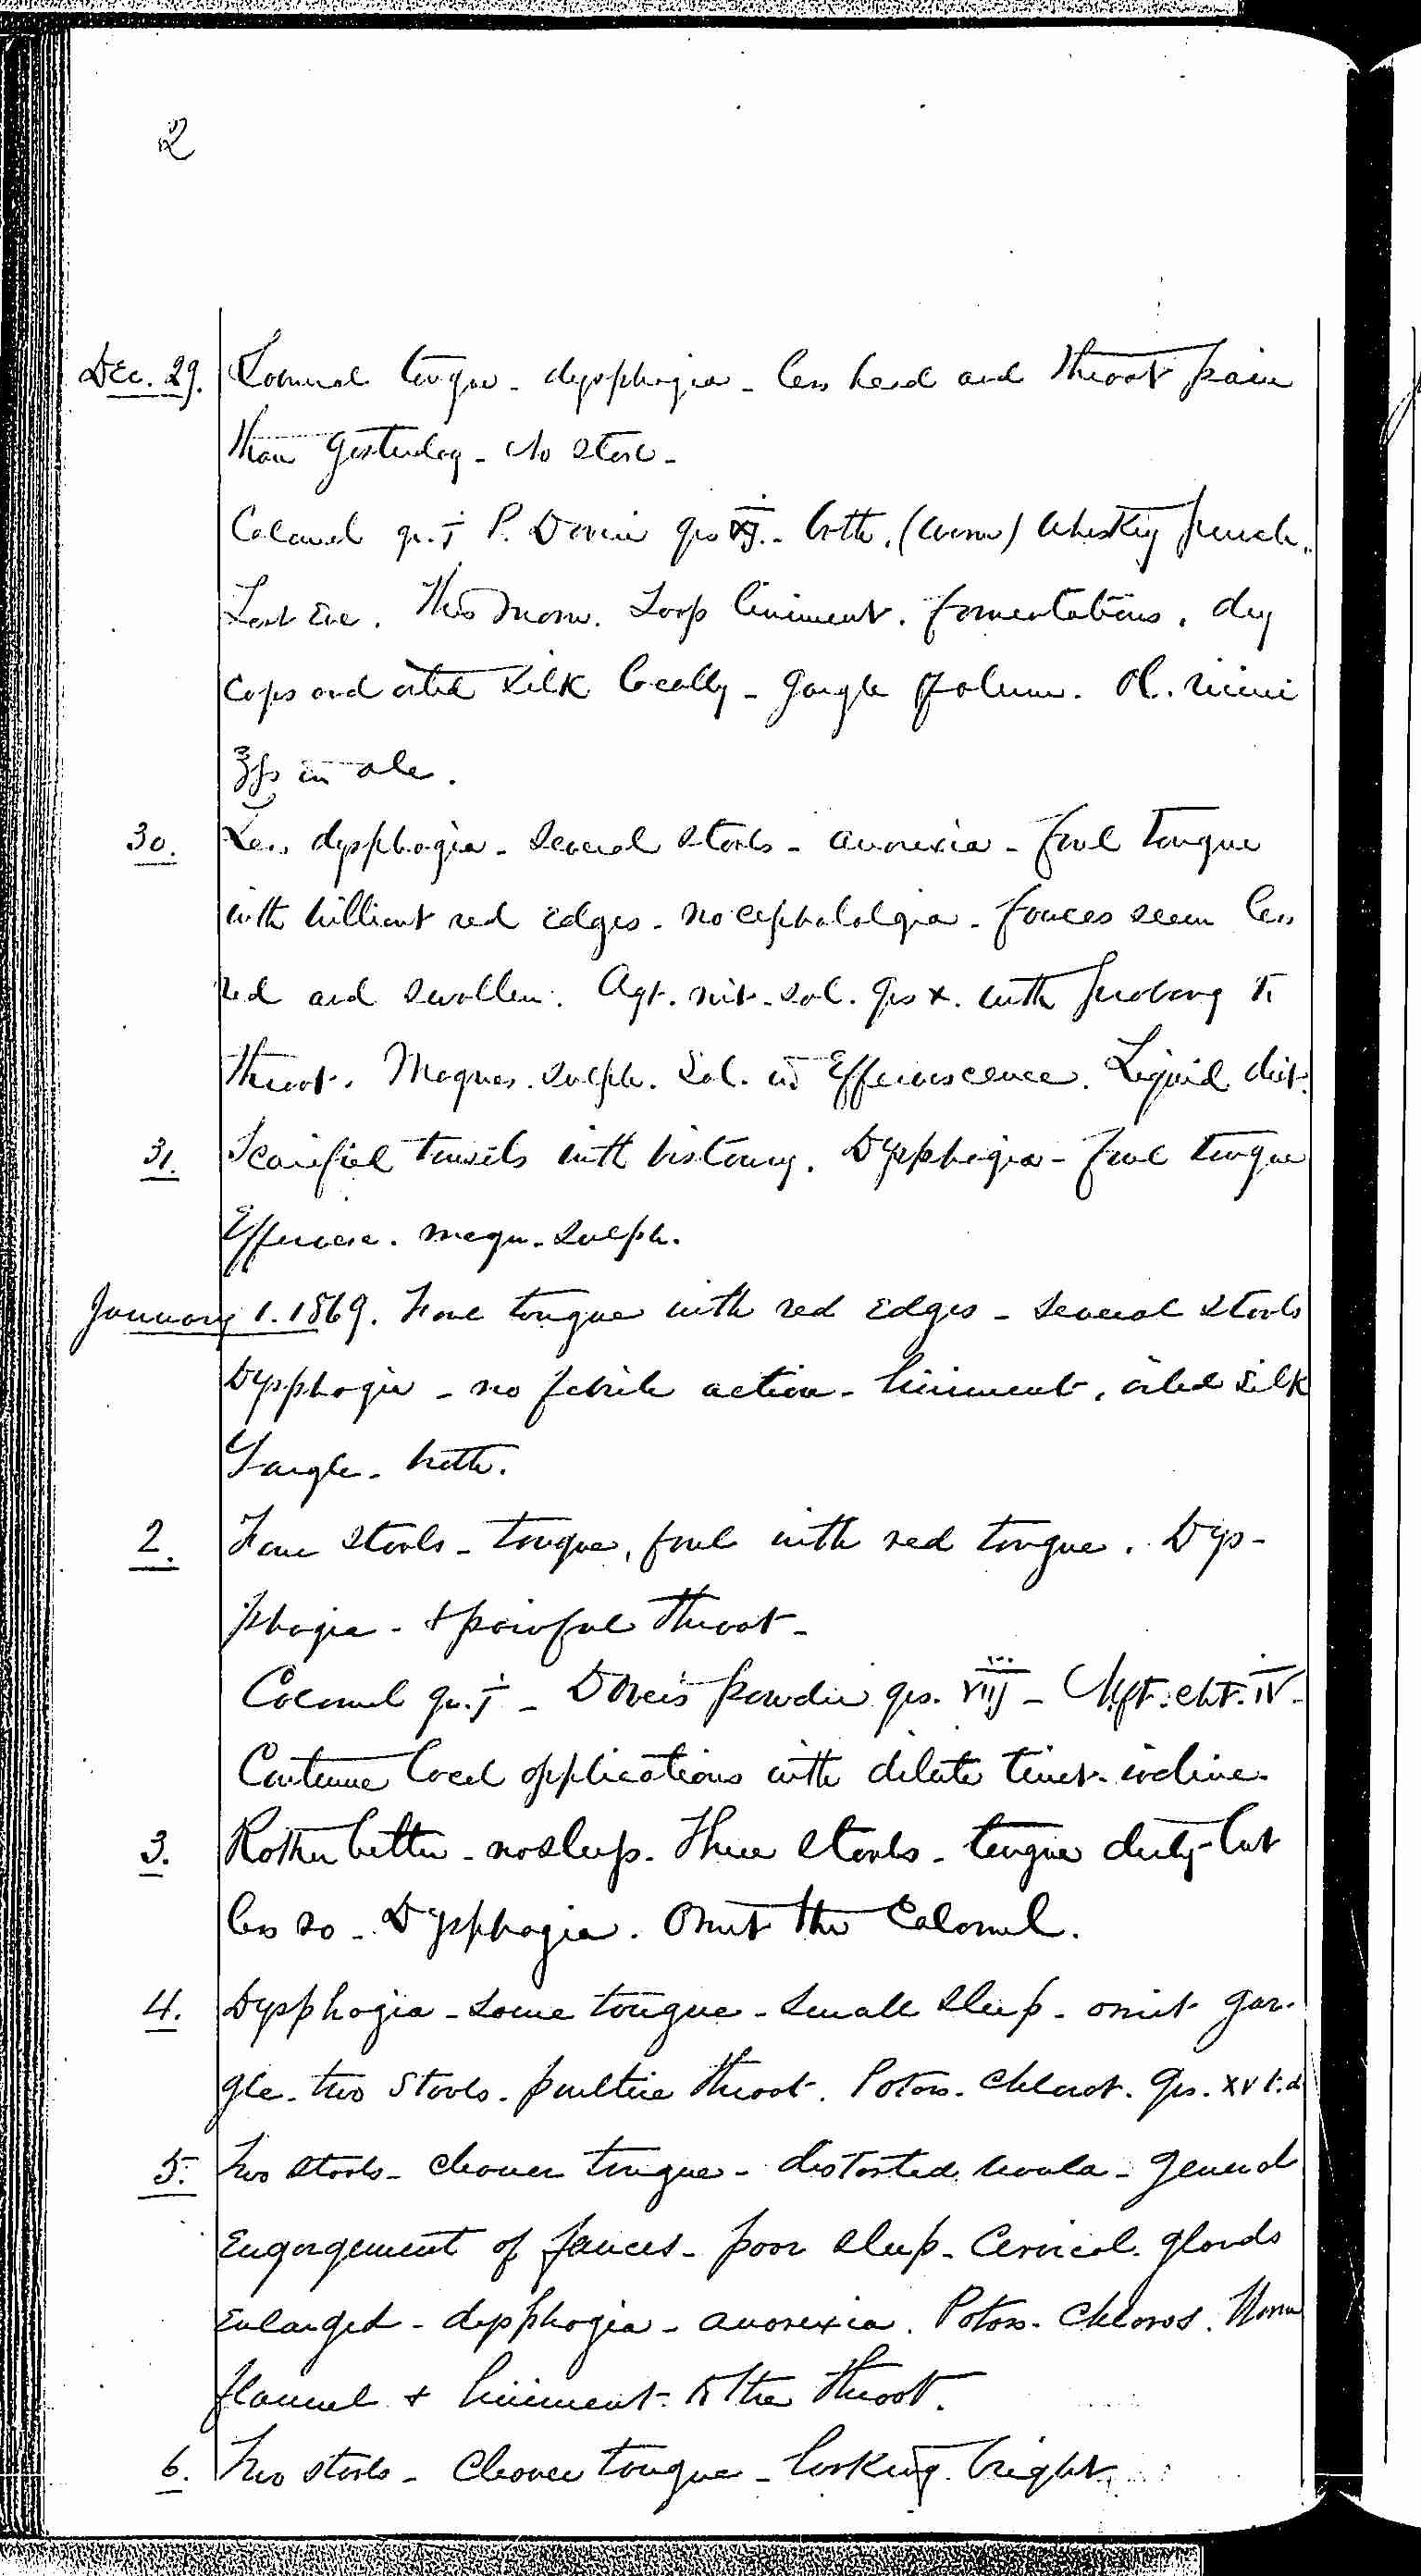 2
Dec. 29. Loaded tongue - dysphagia - less head and throat pain
than yesterday - No stool -
Calomel gr. j P. Doveri grs xij. - both. (warm) whiskey punch.
Last Eve. This morn. Soap liniment. fomentations, dry
cups and oiled silk locally - Gargle of alum. Ol. ricini
℥ss in ale.
30. Less dysphagia - several stools - anorexia - foul tongue
with brilliant red edges - no cephalalgia - fauces seem less
red and swollen. Agt. nit. sol. grs x. with probang to
throat. Magnes. sulph. sol. in Effervescence. Liquid diet.
31. Scarified tonsils with bistoury. Dysphagia - foul tongue
Effervesc. magn. sulph.
January 1. 1869. Foul tongue with red edges - several stools
Dysphagia - no febrile action - liniment, oiled silk
Gargle - bath.
2. Four stools - tongue, foul with red tongue. Dys-
phagia - + painful throat -
Calomel gr. j - Dover's powder grs. viij - Mft. cht. iv -
Continue local applications with dilute tinct. iodine.
3. Rather better - no sleep. Three stools - tongue dirty - but
less so - Dysphagia. Omit the Calomel.
4. Dysphagia - same tongue - small sleep - omit gar-
gle - two stools - poultice throat. Potass. chlorat. grs. xv t.d
5. Two stools - cleaner tongue - distorted uvula - general
Engorgement of fauces - poor sleep - Cervical glands
enlarged - dysphagia - anorexia. Potass. chloras. Warm
flannel + liniment to the throat.
6. Two stools - Cleaner tongue - looking bright